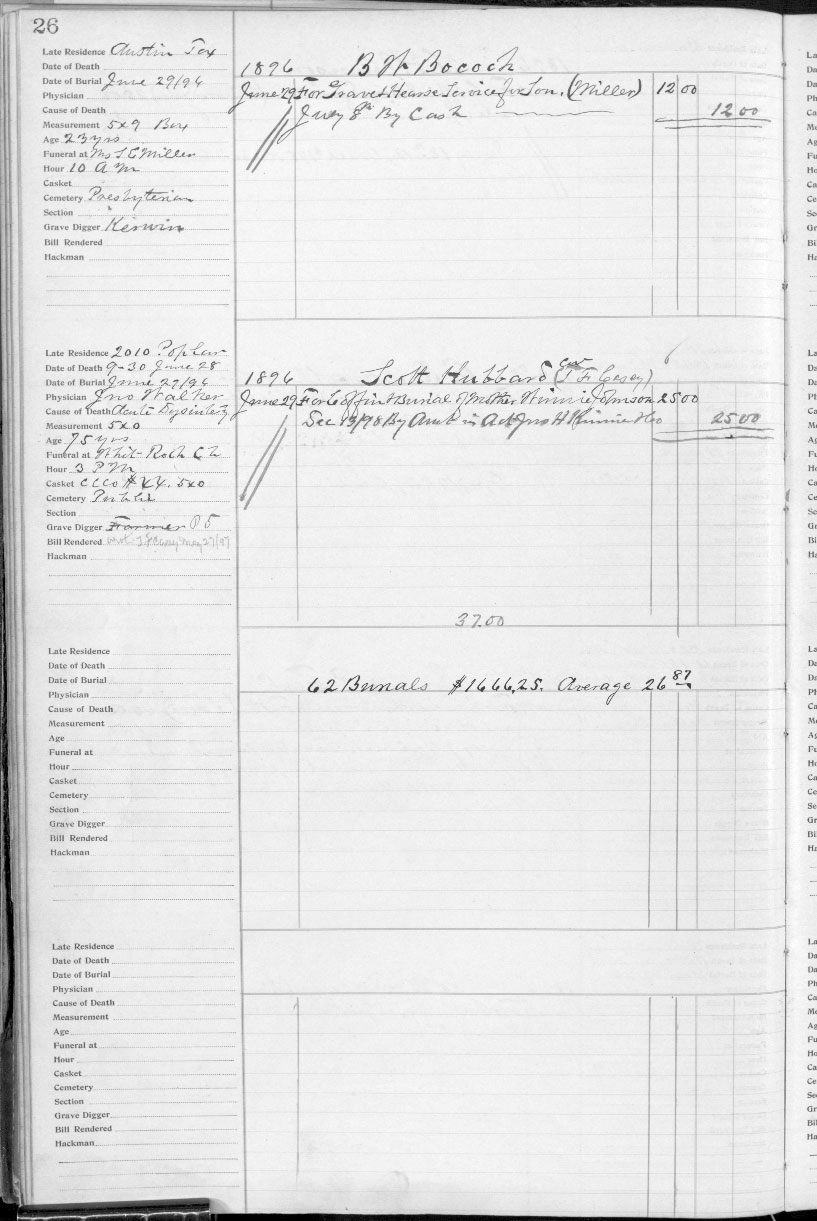 26
Late Residence Austin Tex
Date of Death
Date of Burial June 29/96
Physician
Cause of Death
Measurement 5x9 Box
Age 23 yrs
Funeral at Ms S. E Miller
Hour 10 A M
Casket
Cemetery Presbyterian
Section "
Grave Digger Kerwin
Bill Rendered
Hackman
1896 B H Bococh
June 29 For Grave & Hearse Service for Son. (Miller) 12 00
July 8th By Cash 12 00
Late Residence 2010 Poplar
Date of Death 9-30 June 28
Date of Burial June 29/96
Physician Jno Walker
Cause of Death Acute Dysintery
Measurement 5x0
Age 75 yrs
Funeral at Whit Rock Ch
Hour 3 P M
Casket CCCo # 5x0
Cemetery Public
Section
Grave Digger Farmer P 5
Bill Rendered May 27/97
Hackman
1896 Scott Hubbard (Cor J F Casey)
June 29 For Coffin & Burial of Mother Winnie Johnson 25 00
Dec 13/98 By Amt in Act Jno H 25 00
37.00
Late Residence
Date of Death
Date of Burial
Physician
Cause of Death
Measurement
Age
Funeral at
Hour
Casket
Cemetery
Section
Grave Digger
Bill Rendered
Hackman
62 Burials $1666.25. Average 26 87
Late Residence
Date of Death
Date of Burial
Physician
Cause of Death
Measurement
Age
Funeral at
Hour
Casket
Cemetery
Section
Grave Digger
Bill Rendered
Hackman